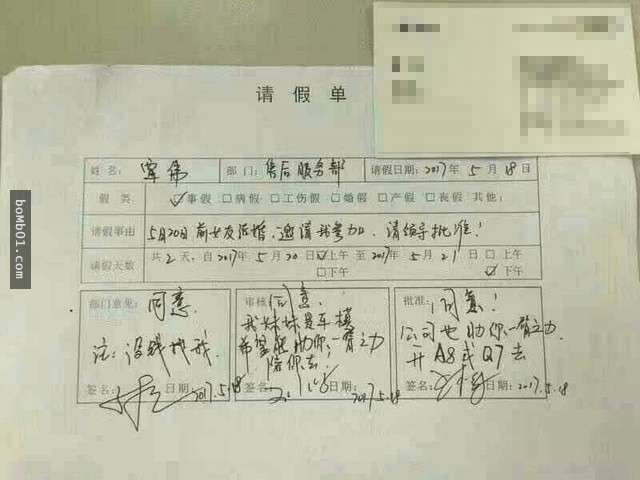 请假单
姓名: 覃伟 部门: 售后服务部 请假日期: 2017年5月18日
假类 ☑事假 □病假 □工伤假 □婚假 □产假 □丧假 其他:
请假事由 5月20日前女友结婚.邀请我参加.请领导批准!
请假天数 共2天,自2017年5月20日☑上午 □下午至2017年5月21日□上午 ☑下午
部门意见: 同意.
注:没钱找我.
签名: 日期: 2017.5.18
审核: 同意.
我妹妹是车模
希望能助你一臂之力
陪你去
签名: 日期: 2017.5.18
批准: 同意!
公司也助你一臂之力.
开A8或Q7去
签名: 日期: 2017.5.18
bomb01.com